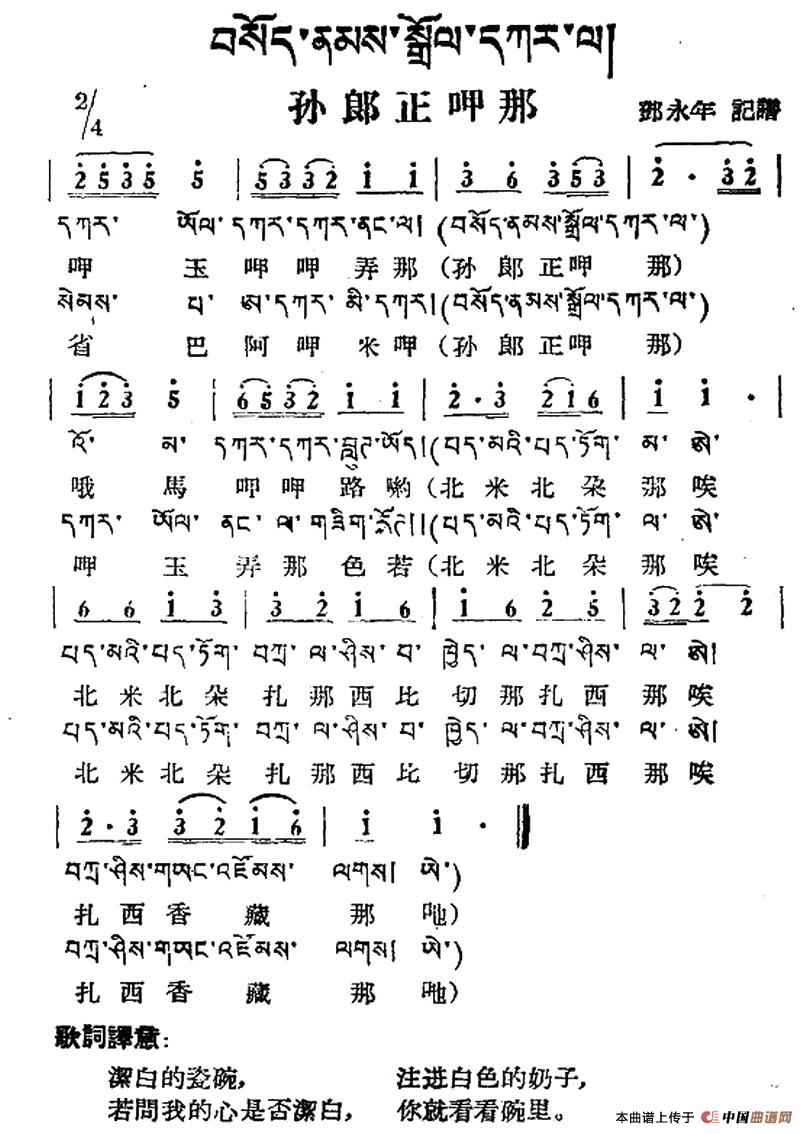 བསོད་ནམས་སྒྲོལ་དཀར་ལ།
2/4 孙郎正呷那 鄧永年 記譜
2 5 3 5 5 | 5 3 3 2 1 1 | 3 6 3 5 3 | 2 · 3 2 |
དཀར་ ཨོལ་ དཀར་དཀར་ནང་ལ། (བསོད་ནམས་སྒྲོལ་དཀར་ལ་)
呷 玉 呷 呷 弄 那 (孙 郎 正 呷 那)
སེམས་ པ་ ཨ་དཀར་ མི་དཀར། (བསོད་ནམས་སྒྲོལ་དཀར་ལ་)
省 巴 阿 呷 米 呷 (孙 郎 正 呷 那)
1 2 3 5 | 6 5 3 2 1 1 | 2 · 3 2 1 6 | 1 1 · |
འོ་ མ་ དཀར་དཀར་བླུད་ཡོད། (པད་མའི་པད་ཏོག་ མ་ ཨེ་
哦 馬 呷 呷 路 喲 (北 米 北 朵 那 唉
དཀར་ ཨོལ་ ནང་ ལ་ གཟིག་རོད།། (པད་མའི་པད་ཏོག་ ལ་ ཨེ་
呷 玉 弄 那 色 若 (北 米 北 朵 那 唉
6 6 1 3 | 3 2 1 6 | 1 6 2 5 | 3 2 2 2 |
པད་མའི་པད་ཏོག་ བཀྲ་ ལ་ཤིས་ བ་ ཁྱེད་ ལ་བཀྲ་ཤིས་ ལ་ ཨེ།
北 米 北 朵 扎 那 西 比 切 那 扎 西 那 唉
པད་མའི་པད་ཏོག་ བཀྲ་ ལ་ཤིས་ བ་ ཁྱེད་ ལ་བཀྲ་ཤིས་ ལ་ ཨེ།
北 米 北 朵 扎 那 西 比 切 那 扎 西 那 唉
2 · 3 3 2 1 6 | 1 1 · ‖
བཀྲ་ཤིས་གཡང་འཛོམས་ ལགས། ཨེ་)
扎 西 香 藏 那 吔)
བཀྲ་ཤིས་གཡང་འཛོམས་ ལགས། ཨེ་)
扎 西 香 藏 那 吔)
歌詞譯意:
潔白的瓷碗, 注进白色的奶子,
若問我的心是否潔白, 你就看看碗里。
本曲谱上传于 中国曲谱网